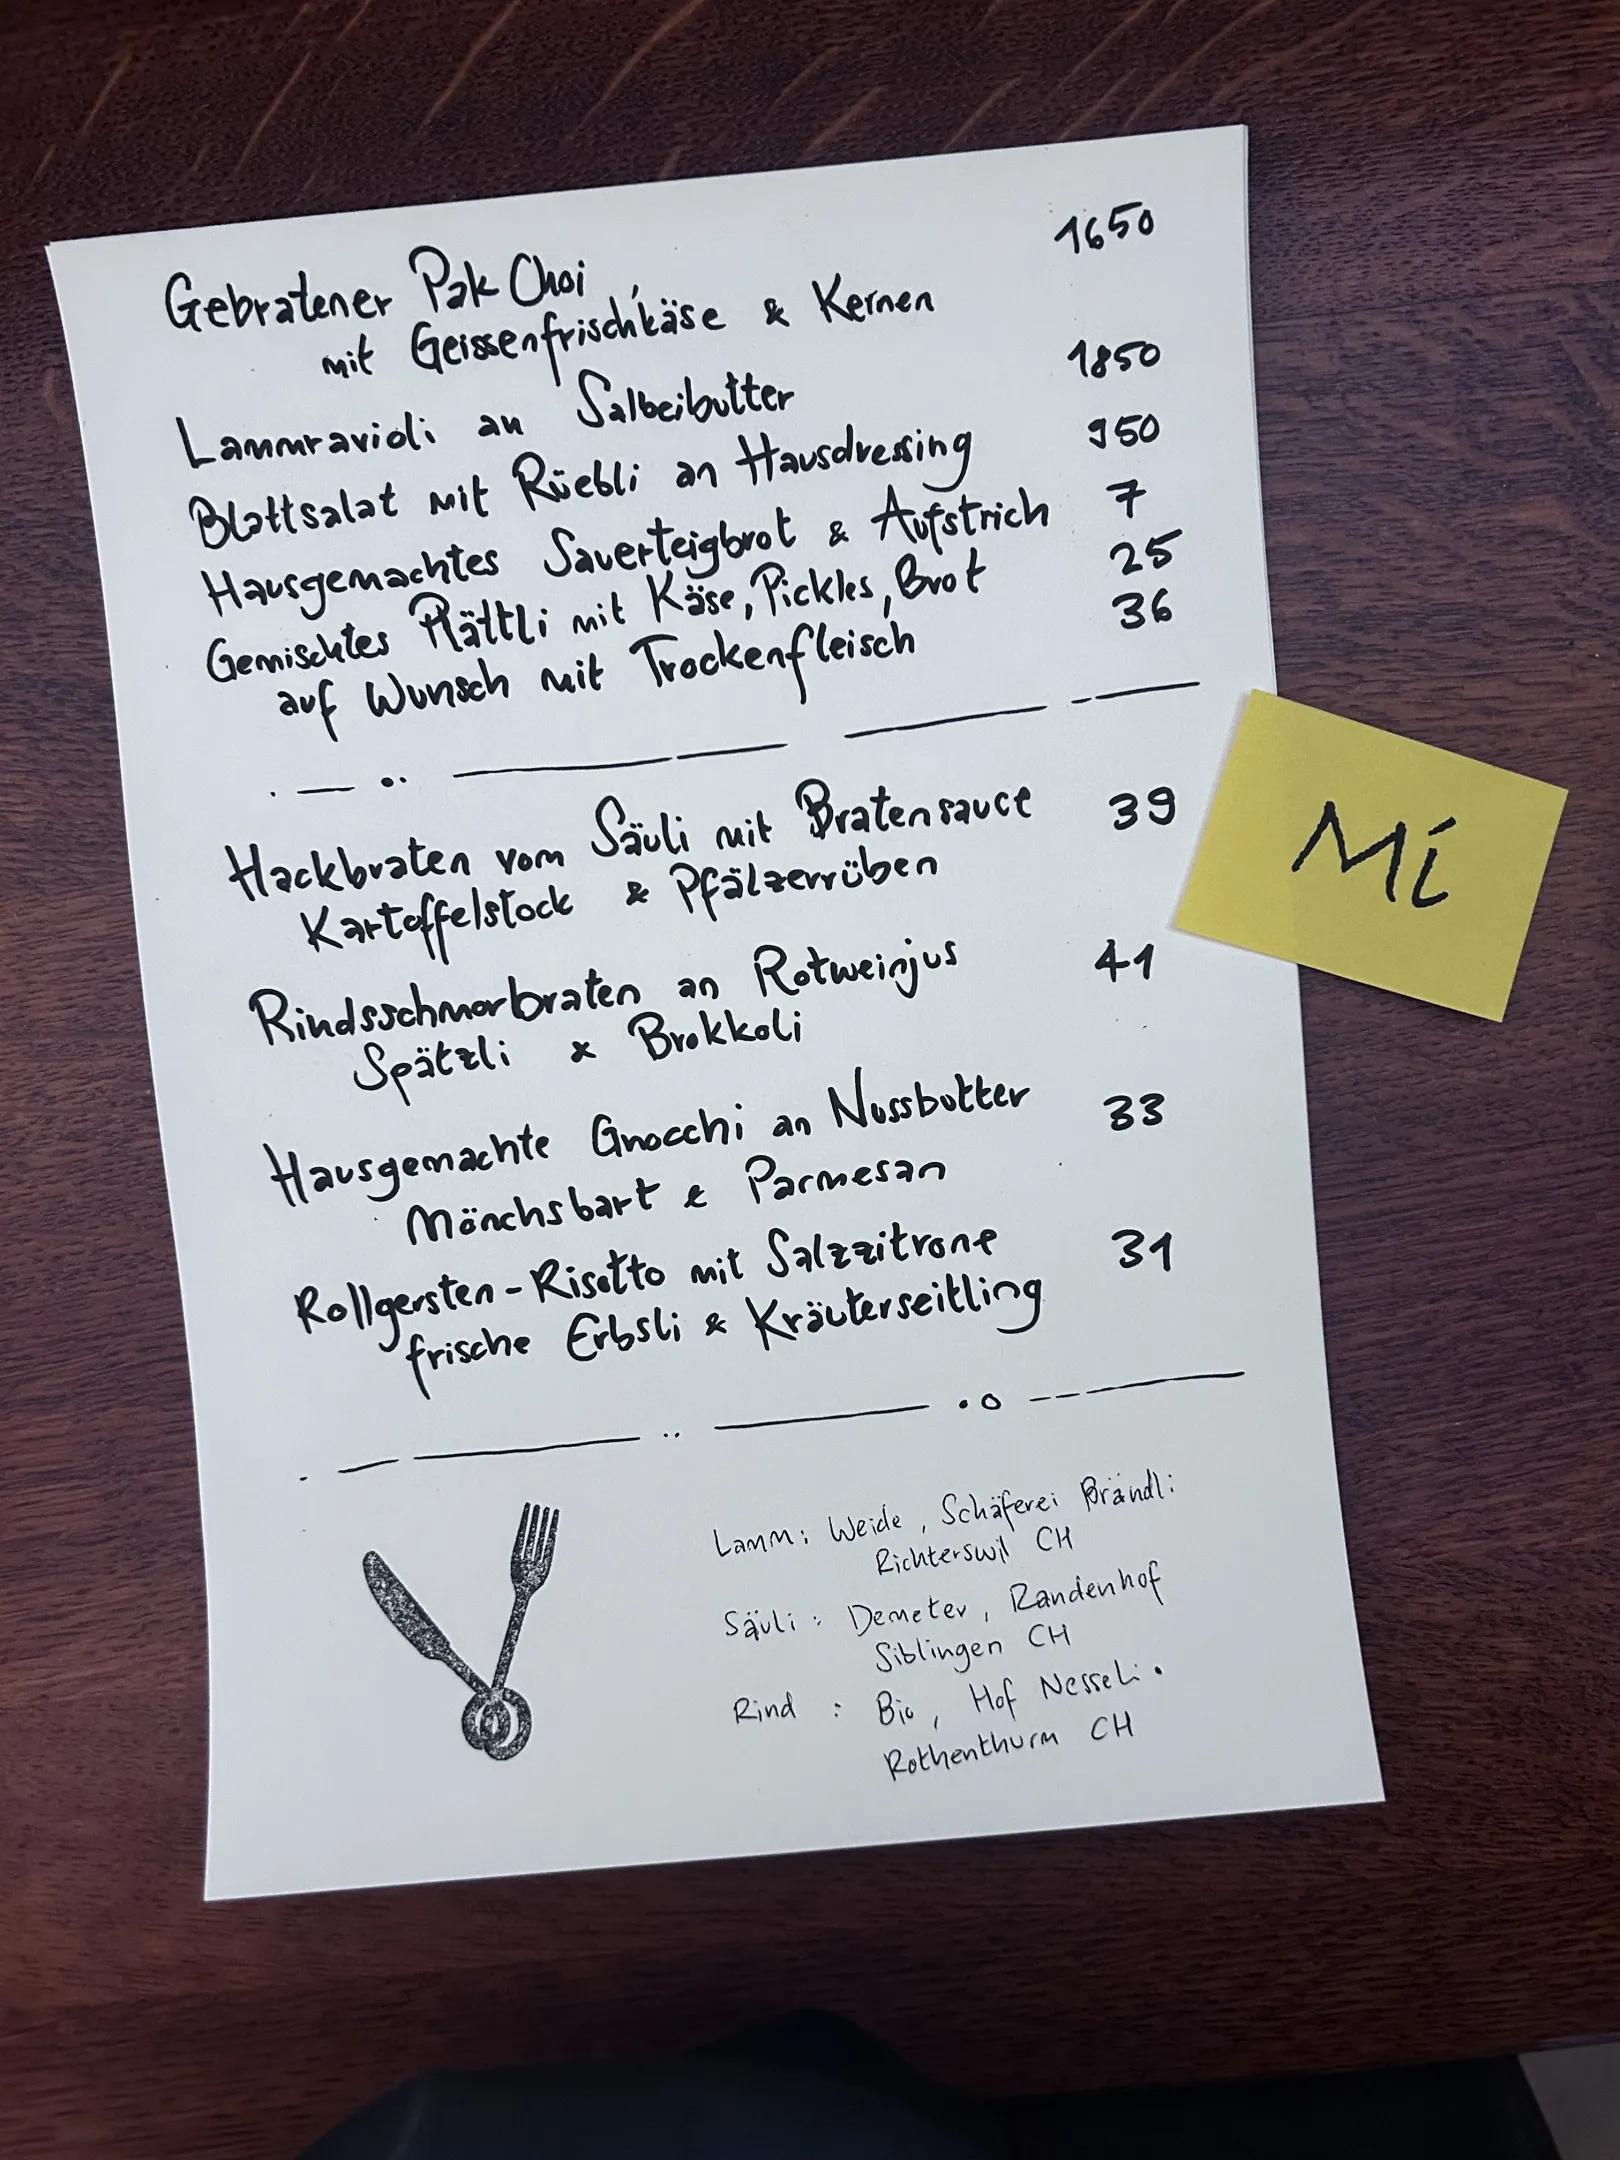 Gebratener Pak Choi 1650
mit Geissenfrischkäse & Kernen
Lammravioli an Salbeibutter 1850
Blattsalat mit Rüebli an Hausdressing 950
Hausgemachtes Sauerteigbrot & Aufstrich 7
Gemischtes Plättli mit Käse, Pickles, Brot 25
auf Wunsch mit Trockenfleisch 36
Hackbraten vom Säuli mit Bratensauce 39
Kartoffelstock & Pfälzerrüben
Rindsschmorbraten an Rotweinjus 41
Spätzli & Brokkoli
Hausgemachte Gnocchi an Nussbutter 33
Mönchsbart & Parmesan
Rollgersten-Risotto mit Salzzitrone 31
frische Erbsli & Kräuterseitling
Mi
Lamm: Weide, Schäferei Brändli
Richterswil CH
Säuli: Demeter, Randenhof
Siblingen CH
Rind: Bio, Hof Nesseli
Rothenthurm CH